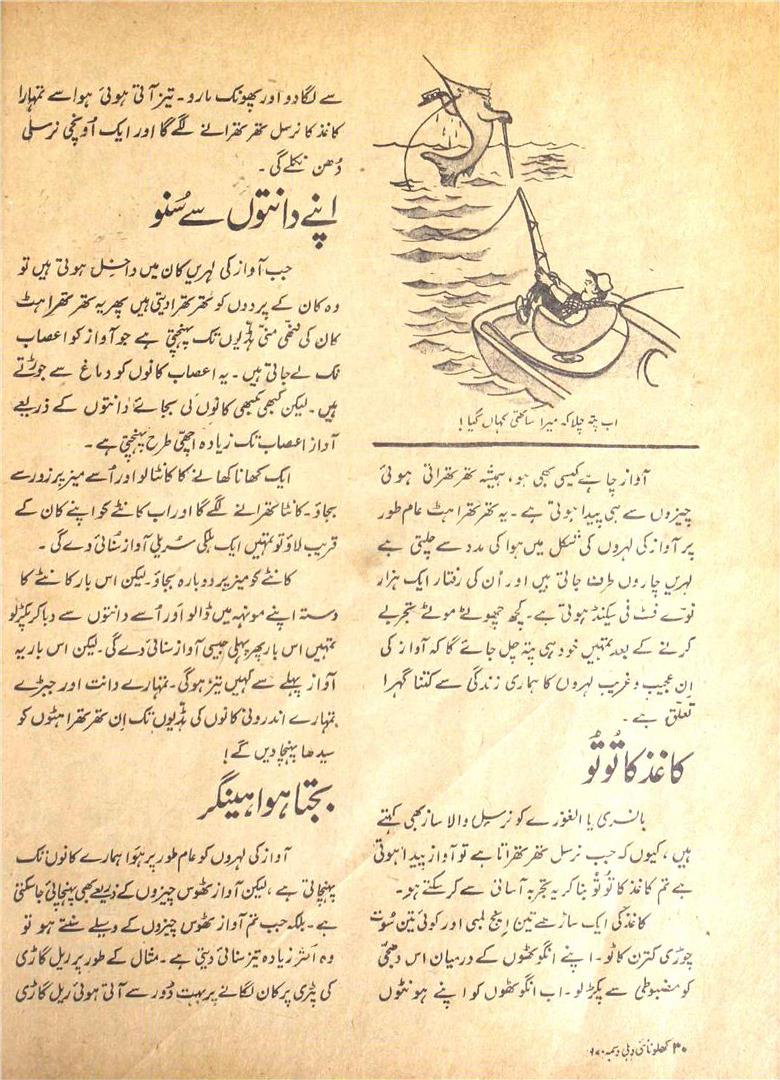 اب پتہ چلا کہ میرا ساتھی کہاں گیا!
آواز چاہے کیسی بھی ہو، ہمیشہ تھرتھراتی ہوئی
چیزوں سے ہی پیدا ہوتی ہے۔ یہ تھرتھراہٹ عام طور
پر آواز کی لہروں کی شکل میں ہوا کی مدد سے چلتی ہے
لہریں چاروں طرف جاتی ہیں اور اُن کی رفتار ایک ہزار
نوّے فٹ فی سیکنڈ ہوتی ہے۔ کچھ چھوٹے موٹے تجربے
کرنے کے بعد تمہیں خود ہی پتہ چل جائے گا کہ آواز کی
اِن عجیب و غریب لہروں کا ہماری زندگی سے کتنا گہرا
تعلّق ہے۔
کاغذ کا تُوتُو
بانسری یا الغوزے کو نرسل والا ساز بھی کہتے
ہیں، کیوں کہ جب نرسل تھرتھراتا ہے تو آواز پیدا ہوتی
ہے تم کاغذ کا تُوتُو بنا کر یہ تجربہ آسانی سے کر سکتے ہو۔
کاغذ کی ایک ساڑھے تین اِنچ لمبی اور کوئی تین سُوت
چوڑی کترن کاٹو۔ اپنے انگوٹھوں کے درمیان اس دھجّی
کو مضبوطی سے پکڑ لو۔ اب انگوٹھوں کو اپنے ہونٹوں
سے لگا دو اور پھونک مارو۔ تیز آتی ہوئی ہوا سے تمہارا
کاغذ کا نرسل تھرتھرانے لگے گا اور ایک اُونچی نرسلی
دُھن نکلے گی۔
اپنے دانتوں سے سُنو
جب آواز کی لہریں کان میں داخل ہوتی ہیں تو
وہ کان کے پردوں کو تھرتھرا دیتی ہیں پھر یہ تھرتھراہٹ
کان کی ننّھی منّی ہڈیوں تک پہنچتی ہے جو آواز کو اعصاب
تک لے جاتی ہیں۔ یہ اعصاب کانوں کو دماغ سے جوڑتے
ہیں۔ لیکن کبھی کبھی کانوں کی بجائے دانتوں کے ذریعے
آواز اعصاب تک زیادہ اچھی طرح پہنچتی ہے۔
ایک کھانا کھانے کا کانٹا لو اور اُسے میز پر زور سے
بجاؤ۔ کانٹا تھرانے لگے گا اور اب کانٹے کو اپنے کان کے
قریب لاؤ تو تمہیں ایک ہلکی سُریلی آواز سُنائی دے گی۔
کانٹے کو میز پر دوبارہ بجاؤ۔ لیکن اس بار کانٹے کا
دستہ اپنے مونہہ میں ڈالو اور اُسے دانتوں سے دبا کر پکڑ لو
تمہیں اس بار پھر پہلی جیسی آواز سنائی دے گی۔ لیکن اس بار یہ
آواز پہلے سے کہیں تیز ہوگی۔ تمہارے دانت اور جبڑے
تمہارے اندرونی کانوں کی ہڈیوں تک اِن تھرتھراہٹوں کو
سیدھا پہنچا دیں گے!
بجتا ہوا ہینگر
آواز کی لہروں کو عام طور پر ہَوا ہمارے کانوں تک
پہنچاتی ہے، لیکن آواز ٹھوس چیزوں کے ذریعے بھی پہنچائی جا سکتی
ہے۔ بلکہ جب تم آواز ٹھوس چیزوں کے وسیلے سنتے ہو تو
وہ اکثر زیادہ تیز سنائی دیتی ہے۔ مثال کے طور پر ریل گاڑی
کی پٹری پر کان لگانے پر بہت دُور سے آتی ہوئی ریل گاڑی
۳۰ کھلونا نئی دہلی دسمبر ۱۹۷۰ء